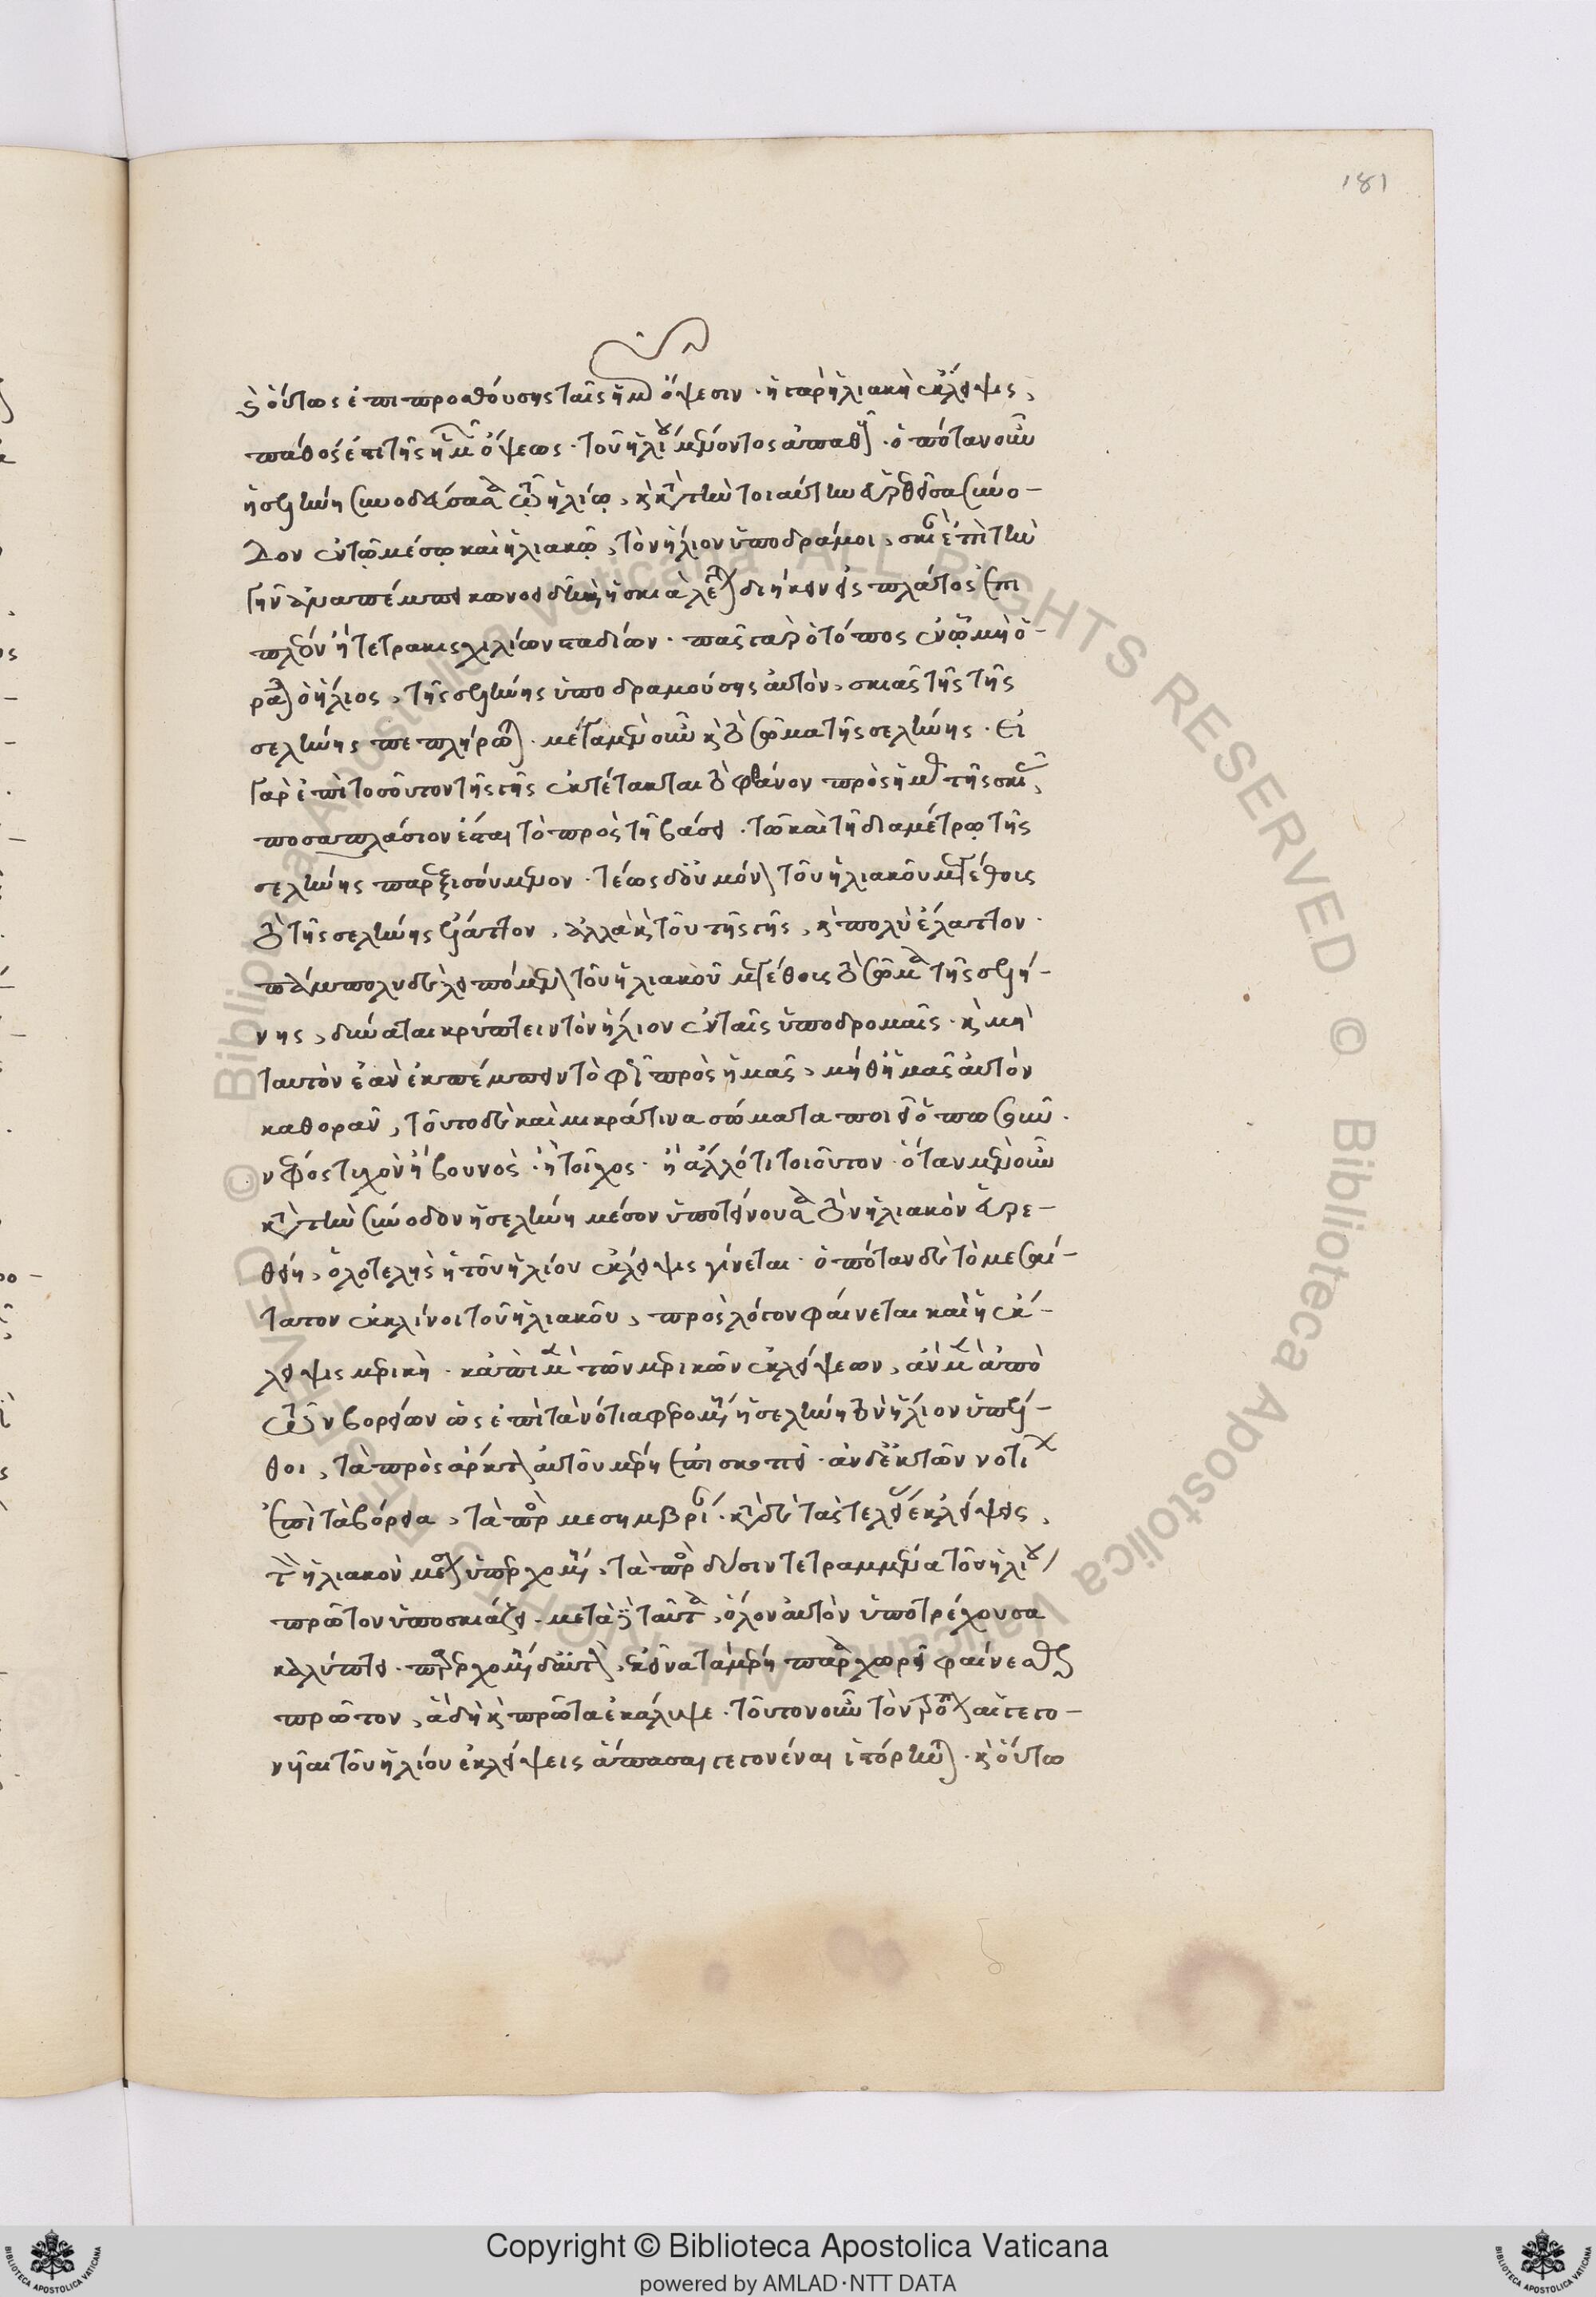 181
οὕτως ἐπιπροσθούσης ταῖς ἡμῶν ὄψεσιν · ἡ γὰρ ἡλιακὴ ἔκλειψις,
πάθός ἐστι τῆς ἡμῶν ὄψεως · τοῦ ἡλίου μένοντος ἀπαθοῦς · ὁπόταν οὖν
ἡ σελήνη συνοδεύσασα τῷ ἡλίῳ, καὶ κατὰ τὴν τοιαύτην εὑρεθεῖσα σύνο-
δον ἐν τῷ μέσῳ καὶ ἡλιακῷ, τὸν ἥλιον ὑποδράμοι, σκιὰν ἐπὶ τὴν
γῆν ἀναπέμπει κωνοειδῆ ἡ σκιὰ λέγεται διήκειν εἰς πλάτος ἐπι
πλέον ἢ τετρακισχιλίων σταδίων · πᾶς γὰρ ὁ τόπος ἐν ᾧ μὴ ὁ-
ρᾶται ὁ ἥλιος, τῆς σελήνης ὑποδραμούσης αὐτὸν, σκιᾶς τῆς τῆς
σελήνης πεπλήρωται · μέγα μὲν οὖν καὶ τὸ σῶμα τῆς σελήνης · Εἰ
γὰρ ἐπὶ τοσοῦτον τῆς γῆς ἐκτέτακται τὸ φθάνον πρὸς ἡμᾶς τῆς σκιᾶς,
ποσαπλάσιον ἔσται τὸ πρὸς τῇ βάσει · τῶ καὶ τῇ διαμέτρῳ τῆς
σελήνης παρεξισούμενον · τέως δ' οὐ μόνον τοῦ ἡλιακοῦ μεγέθους
τὸ τῆς σελήνης ἔλαττον, ἀλλὰ καὶ τοῦ τῆς γῆς, καὶ πολὺ ἔλαττον ·
πάμπολυ δὲ λειπόμενον τοῦ ἡλιακοῦ μεγέθους τὸ σῶμα τῆς σελή-
νης, δύναται κρύπτειν τὸν ἥλιον ἐν ταῖς ὑποδρομαῖς · καὶ μὴ
ταυτὸν ἐὰν ἐκπέμπειν τὸ φῶς πρὸς ἡμᾶς, μήθ' ἡμᾶς αὐτὸν
καθορᾶν, τοῦτο δὲ καὶ μικρά τινα σώματα ποιεῖ
νέφος τυχὸν ἢ βουνὸς · ἢ τοῖχος · ἢ ἄλλό τι τοιοῦτον · ὅταν μὲν οὖν
κατὰ τὴν σύνοδον ἡ σελήνη μέσον ὑποτείνουσα τὸν ἡλιακὸν εὑρε-
θείη, ὁλοτελὴς ἡ τοῦ ἡλίου ἔκλειψις γίνεται · ὁπόταν δὲ τὸ μεσαί-
τατον ἐκκλίνοι τοῦ ἡλιακοῦ, πρὸς λόγον φαίνεται καὶ ἡ ἔκ-
λειψις μερικὴ · κἀπὶ μὲν τῶν μερικῶν ἐκλείψεων, ἂν μὲν ἀπὸ
τῶν βορείων ὡς ἐπὶ τὰ νότια φερομένη ἡ σελήνη τὸν ἥλιον ὑπέλ-
θοι, τὰ πρὸς ἄρκτον αὐτοῦ μέρη ἐπισκοτεῖ · ἂν δ' ἐκ τῶν νοτίων
ἐπὶ τὰ βόρεια, τὰ πρὸς μεσημβρίαν · κατὰ δὲ τὰς τελείας ἐκλείψεις,
τὸν ἡλιακὸν ὑπερχομένη, τὰ πρὸς δύσιν τετραμμένα τοῦ ἡλίου
πρῶτον ὑποσκιάζει · μετὰ δὲ ταῦτα, ὅλον αὐτὸν ὑποτρέχουσα
καλύπτει · παρερχομένη δ' αὐτὸν, ἐκεῖνα τὰ μέρη παραχωρεῖ φαίνεσθαι
πρῶτον, ἃ δὴ καὶ πρῶτα ἐκάλυψε · τοῦτον οὖν τὸν τρόπον αἱ γεγο-
νυῖαι τοῦ ἡλίου ἐκλείψεις ἅπασαι γεγονέναι ἱστόρηνται · καὶ οὕτω
Copyright © Biblioteca Apostolica Vaticana
powered by AMLAD·NTT DATA